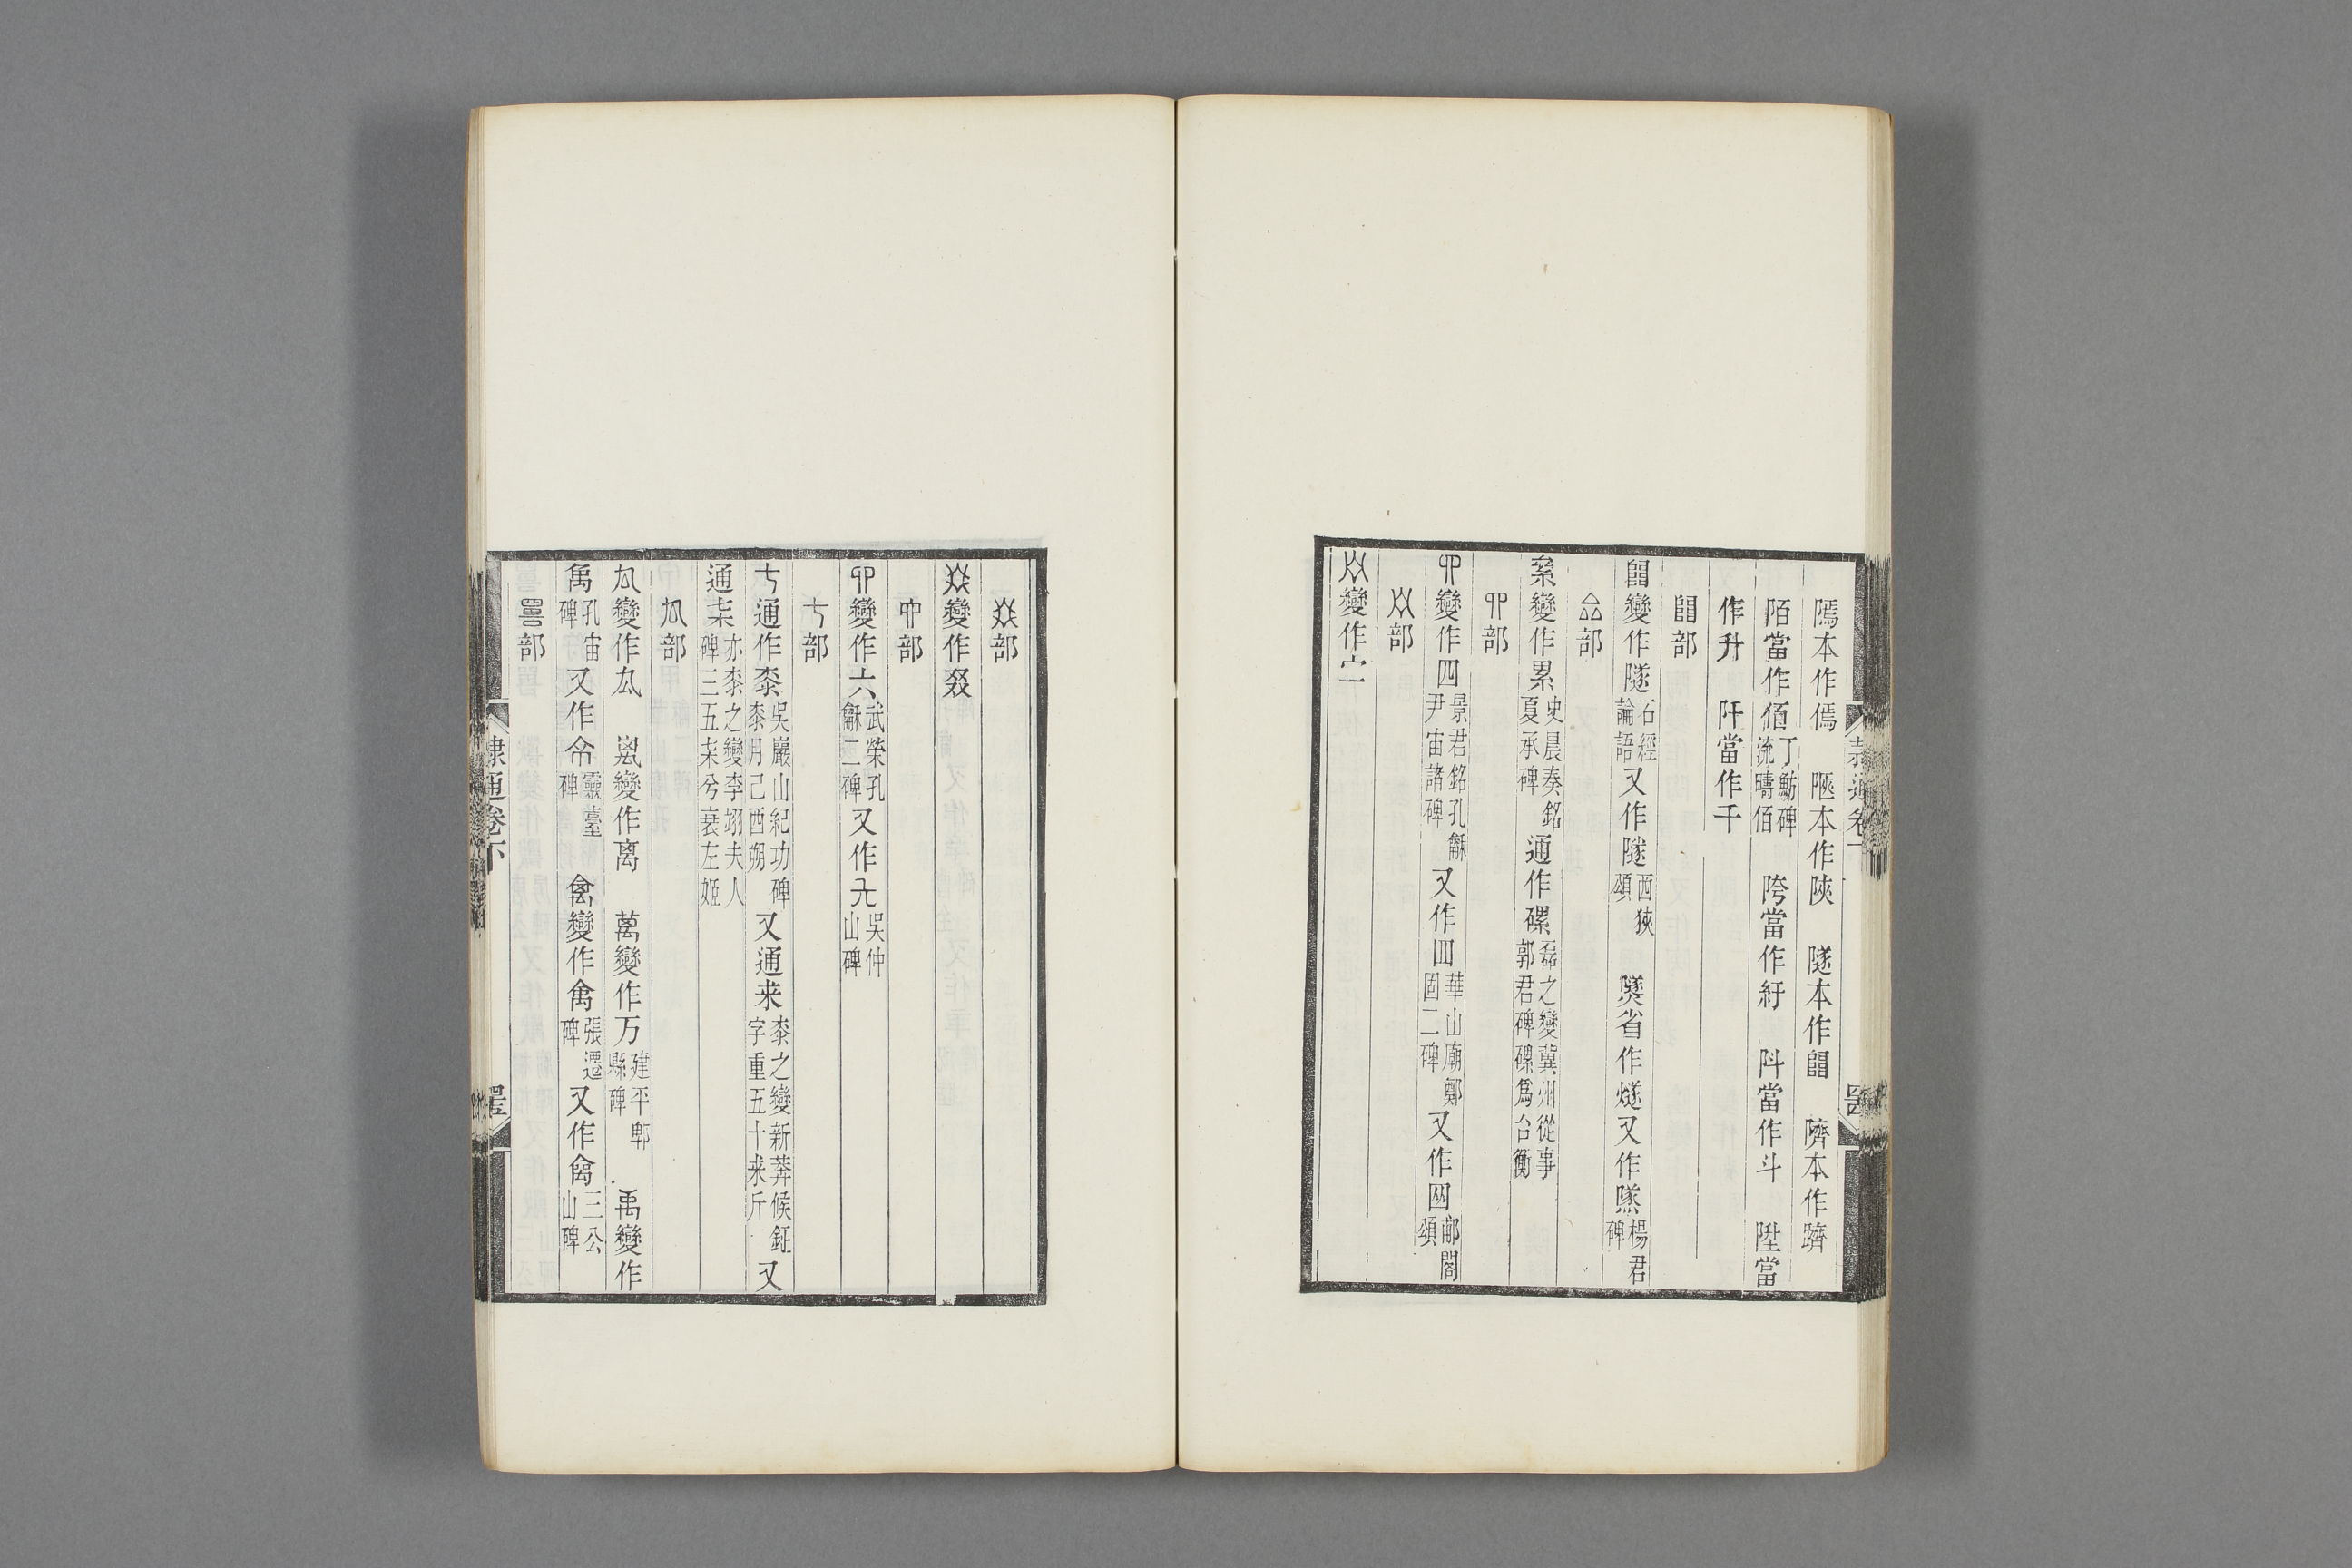 隖本作傿　陿本作陝　隧本作𨺅　隮本作躋
陌當作佰丁魴碑流疇佰　䧄當作紆　阧當作斗　陞當
作升　阡當作千
𨺅部
𨺅變作隧石經論語又作隧西狹頌　㸂省作燧又作㷭楊君碑
厽部
絫變作累史晨奏銘夏承碑通作磥磊之變冀州從事郭君碑磥爲台衡
四部
變作四景君銘孔龢尹宙諸碑又作四華山廟鄭固二碑又作郙閣頌
部
變作宁
隸通卷下
叕部
叕變作叕
部
變作六武榮孔龢二碑又作吳仲山碑
七部
七通作桼吳巖山紀功碑桼月己酉朔又通来桼之變新莽候鉦字重五十来斤又
通亦桼之變李翊夫人碑三五兮衰左姬
禸部
禸變作禸　离變作离　萬變作万建平郫縣碑　禹變作
孔宙碑又作靈臺碑　禽變作張遷碑又作三公山碑
嘼部
隸通卷下